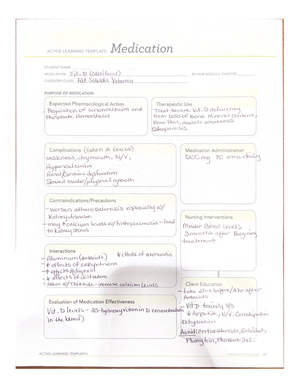 ACTIVE LEARNING TEMPLATE: Medication
STUDENT NAME
MEDICATION Vit. D (calciferol)
REVIEW MODULE CHAPTER
CATEGORY CLASS Fat Soluble Vitamin
PURPOSE OF MEDICATION
Expected Pharmacological Action
Regulation of serum calcium and
Phosphate homeostasis
Therapeutic Use
Treat severe Vit. D deficiency
from Loss of bone mineral content,
Bone Pain, muscle weakness
Osteoporosis
Complications (taken in excess)
weakness, dry mouth, N/V,
Hypercalcemia
Renal/Cardiac dysfunction
Slowed mental/physical growth
Medication Administration
PO once daily
Contraindications/Precautions
- Worsen atherosclerosis especially w/
Kidney disease
- may ↑ calcium levels w/ histoplasmosis - lead
to kidney issues
Nursing Interventions
Monitor Blood levels
3 months after Beginning
treatment
Interactions
- Aluminum (antacids)
↓ effects of atorvastatin
- effects of calcipotriene
- effects of digoxin
- effects of diltiazem
- taken w/ Thiazide - increase calcium levels
Client Education
- take 2 hrs before/4 hr after
Antacids
- Vit D toxicity S/S
↓ Appetite, N/V, Constipation
Dehydration
Avoid: Anticonvulsants,
Phenytoin, Phenobarbital
Evaluation of Medication Effectiveness
Vit. D levels - 25-hydroxyvitamin D concentration
in the blood)
ACTIVE LEARNING TEMPLATES